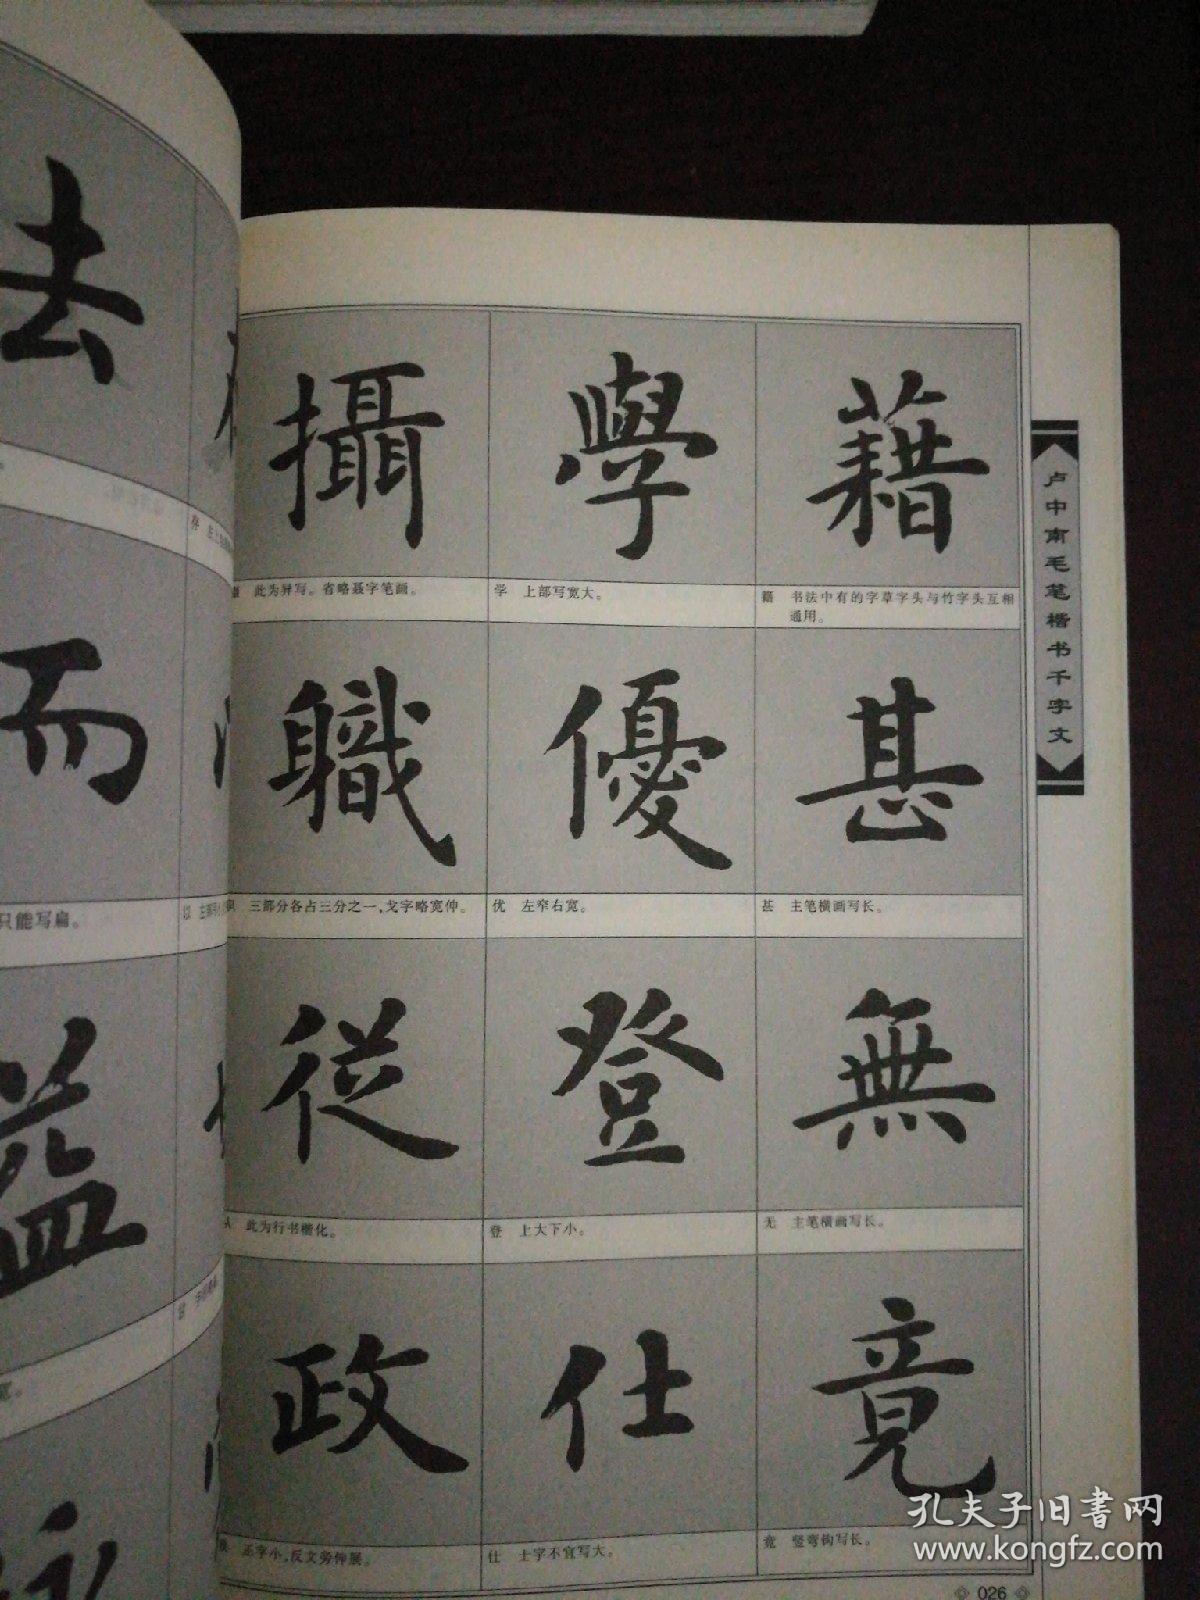 去
而
只能写扁。
益
攝
學
藉
此为异写。省略聂字笔画。
学 上部写宽大。
籍 书法中有的字草字头与竹字头互相
通用。
職
優
甚
三部分各占三分之一,戈字略宽伸。
优 左窄右宽。
甚 主笔横画写长。
従
登
無
此为行书楷化。
登 上大下小。
无 主笔横画写长。
政
仕
竟
正字小,反文旁伸展。
仕 士字不宜写大。
竟 竖弯钩写长。
卢中南毛笔楷书千字文
026
孔夫子旧書网
www.kongfz.com